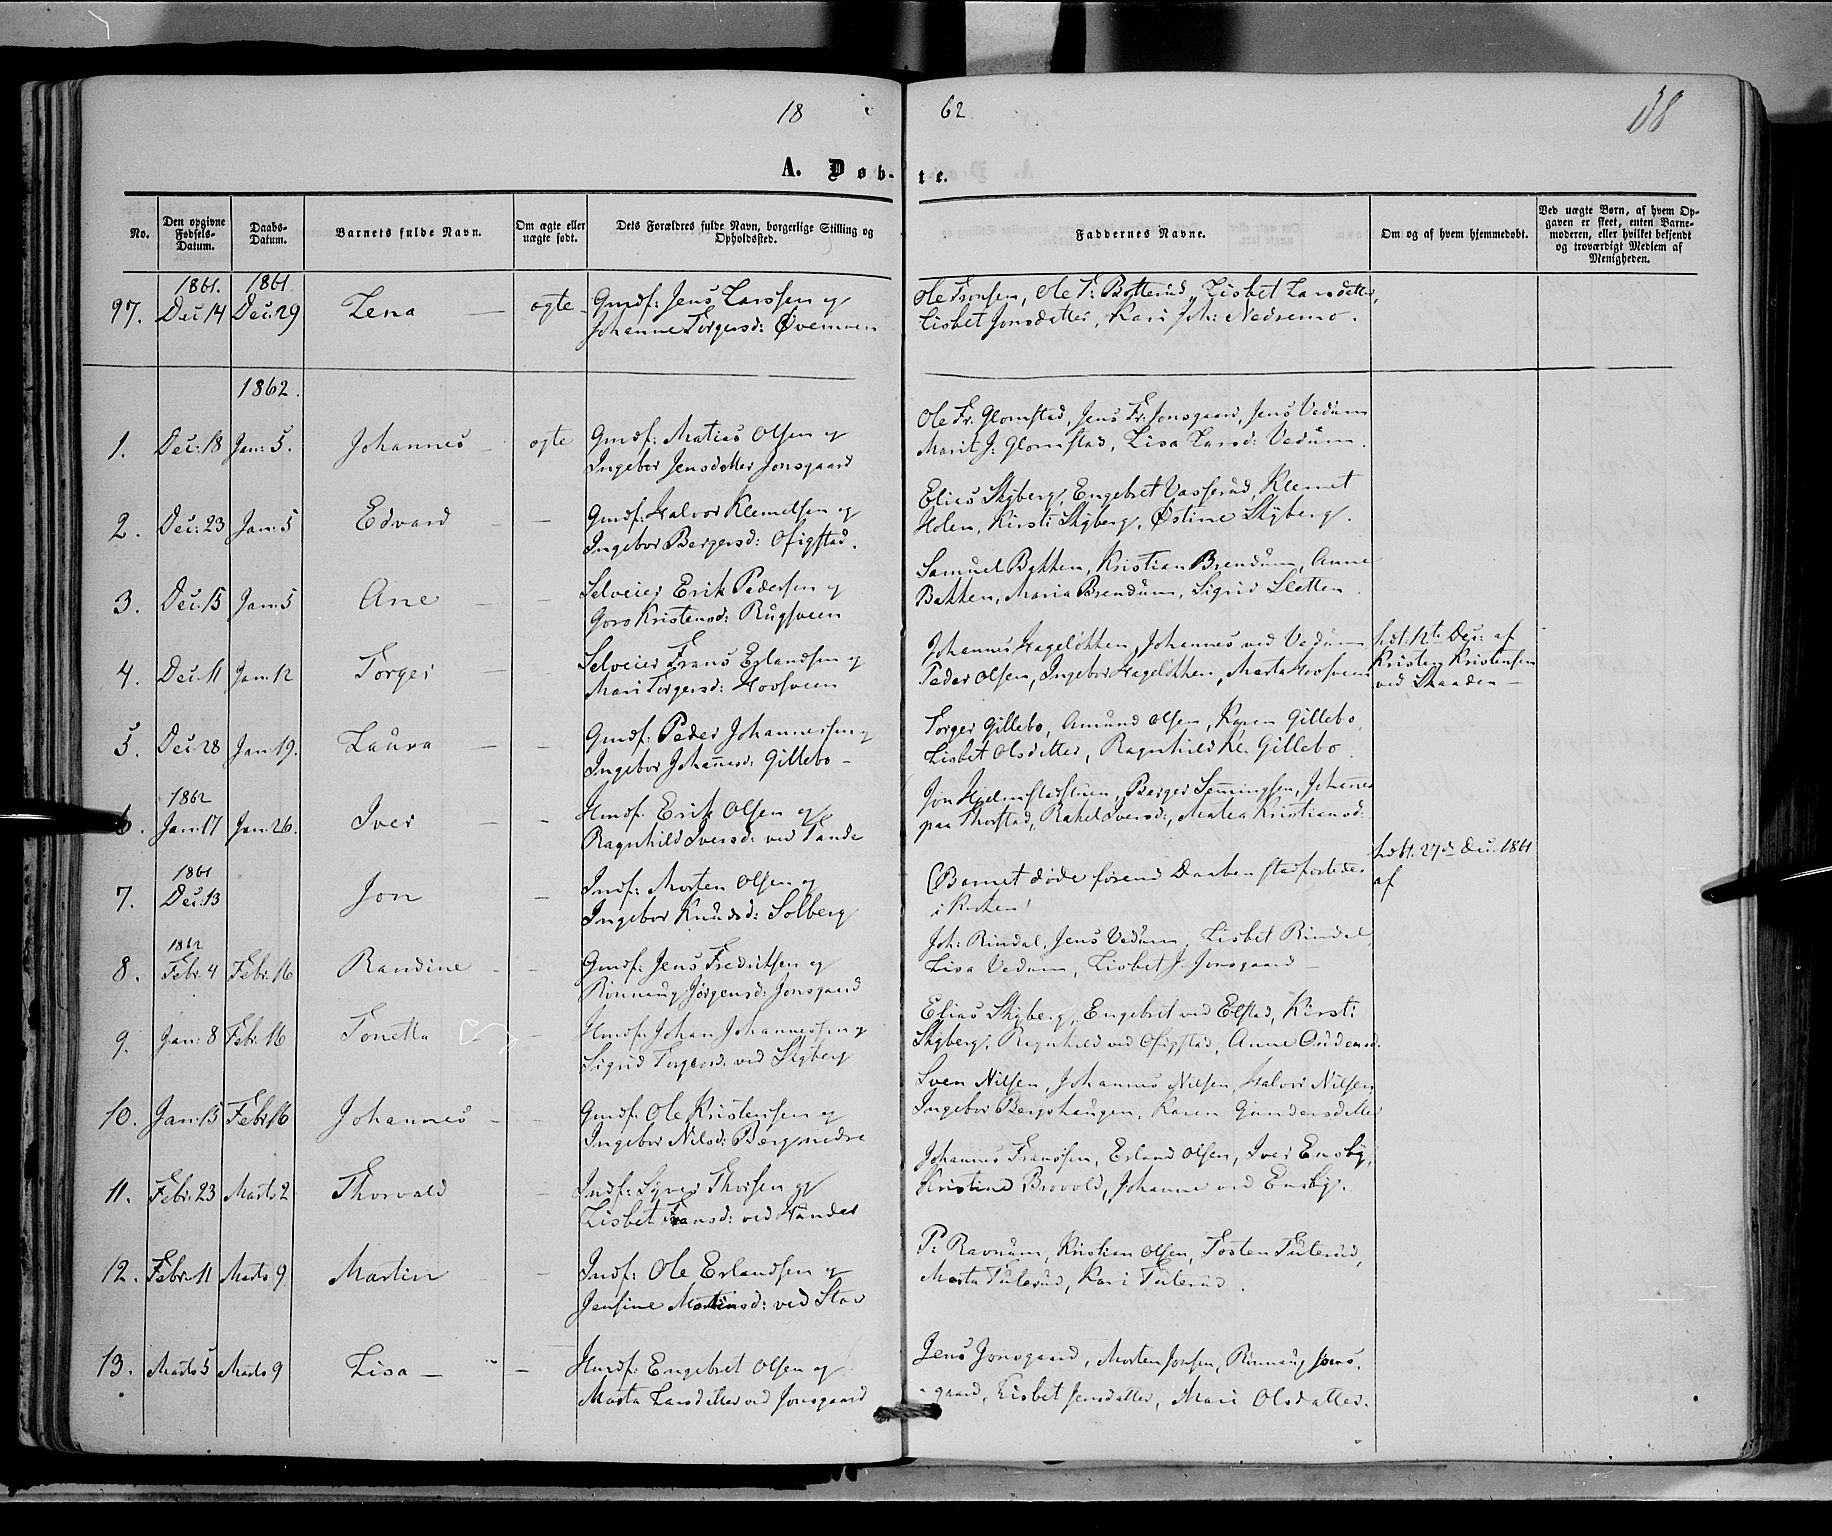 18 62. 38
A. Døb- te.
No. | Den opgivne Fødsels-Datum. | Daabs-Datum. | Barnets fulde Navn. | Om ægte eller uægte født. | Dets Forældres fulde Navn, borgerlige Stilling og Opholdssted. | Faddernes Navne. | Om og af hvem hjemmedøbt. | Ved uægte Børn, af hvem Opgaven er skeet, enten Barnemoderen, eller hvilket bekjendt og troværdigt Medlem af Menigheden.
1861. 1861.
97. Dec: 14 Dec: 29 Lena — ægte - Gmdf: Jens Larssen og Ole Fronsen, Ole T: Botterud, Lisbet Larsdatter,
Johanne Torgersd: Øvemoen Lisbet Jonsdatter, Kari Joh: Nedremo.
1862.
1. Dec: 18 Jan: 5. Johannes - ægte Gmdf: Matias Olsen og Ole Fr. Glomstad, Jens Fr: Jonsgaard, Jens Vedum
Ingebor Jensdatter Jonsgaard Marit J: Glomstad, Lisa Larsd: Vedum.
2. Dec: 23 Jan: 5 Edvard — — Gmdf: Halvor Klemetsen og Elias Skyberg, Engebret Vasserud, Klemet
Ingebor Bergersd: Ofigstad. Holen, Kirsti Skyberg, Østine Skyberg.
3. Dec: 15 Jan: 5 Ane — — Selveier Erik Pedersen og Samuel Bakken, Kristian Brendum, Anne
Goro Kristensd: Rugsveen Bakken, Maria Brendum, Sigrid Sletten.
4. Dec: 11 Jan: 12 Torger — Selveier Frans Erlandsen og Johannes Hageløkken, Johannes ved Vedum hdt. 12te Dec: af
Mari Torgersd: Hovsveen Peder Olsen, Ingebor Hageløkken, Marta Hovsveen Kristen Kristensen
ved Skaaden —
5. Dec: 28 Jan: 19. Laura — - Gmdf: Peder Johannessen og Torger Gillebo, Amund Olsen, Karen Gillebo,
Ingebor Johannesd: Gillebo - Lisbet Olsdatter, Ragnhild Kl: Gillebo
1862
6. Jan: 17 Jan: 26. Iver — - Hmdf: Erik Olsen og Jon Hjelmstadstuen, Berger Semmingsen, Johannes
Ragnhild Iversd: ved Tande paa Thorstad, Rakel Iversd:, Matea Kristiansd:
1861
7. Dec: 13 Jon — Indf: Morten Olsen og (Barnet døde førend Daaben stadfæstedes hdbt. 27de Dec: 1861
Ingebor Knudsd: Solberg i Kirken) af
1862
8. Febr: 4 Febr: 16 Randine - - Gmdf: Jens Fredriksen og Joh: Rindal, Jens Vedum, Lisbet Rindal,
Rønnaug Jørgensd: Jonsgaard Lisa Vedum, Lisbet J. Jonsgaard —
9. Jan: 8 Febr: 16 Tonetta - Hmdf: Johan Johannessen og Elias Skyberg, Engebret ved Elstad, Kirsti
Sigrid Torgersd: ved Skyberg Skyberg, Ragnhild ved Ofigstad, Anne Andersd:
10. Jan: 15 Febr: 16 Johannes - - Gmdf: Ole Kristensen og Sven Nilsen, Johannes Nilsen, Halvor Nilsen
Ingebor Nilsd: Berg nedre Ingebor Bergshaugen, Karen Gundersdatter
11. Febr: 23 Marts 2 Thorvald - Indf: Syver Thorsen og Johannes Fransen, Erland Olsen, Iver Ensby,
Lisbet Fransd: ved Kristine Brovold, Johanne ved Ensby.
12. Febr: 11 Marts 9. Martin - - Indf: Ole Erlandsen og P: Ravnum, Kristian Olsen, Tosten Fulerud,
Jensine Martinsd: ved Stav Marta Fulerud, Kari Fulerud.
13. Marts 5 Marts 9 Lisa — - Hmdf: Engebret Olsen og Jens Jonsgaard, Morten Jonsen, Rønnaug Jons-
Marta Larsdatter ved Jonsgaard -gaard, Lisbet Jensdatter, Mari Olsdatter.